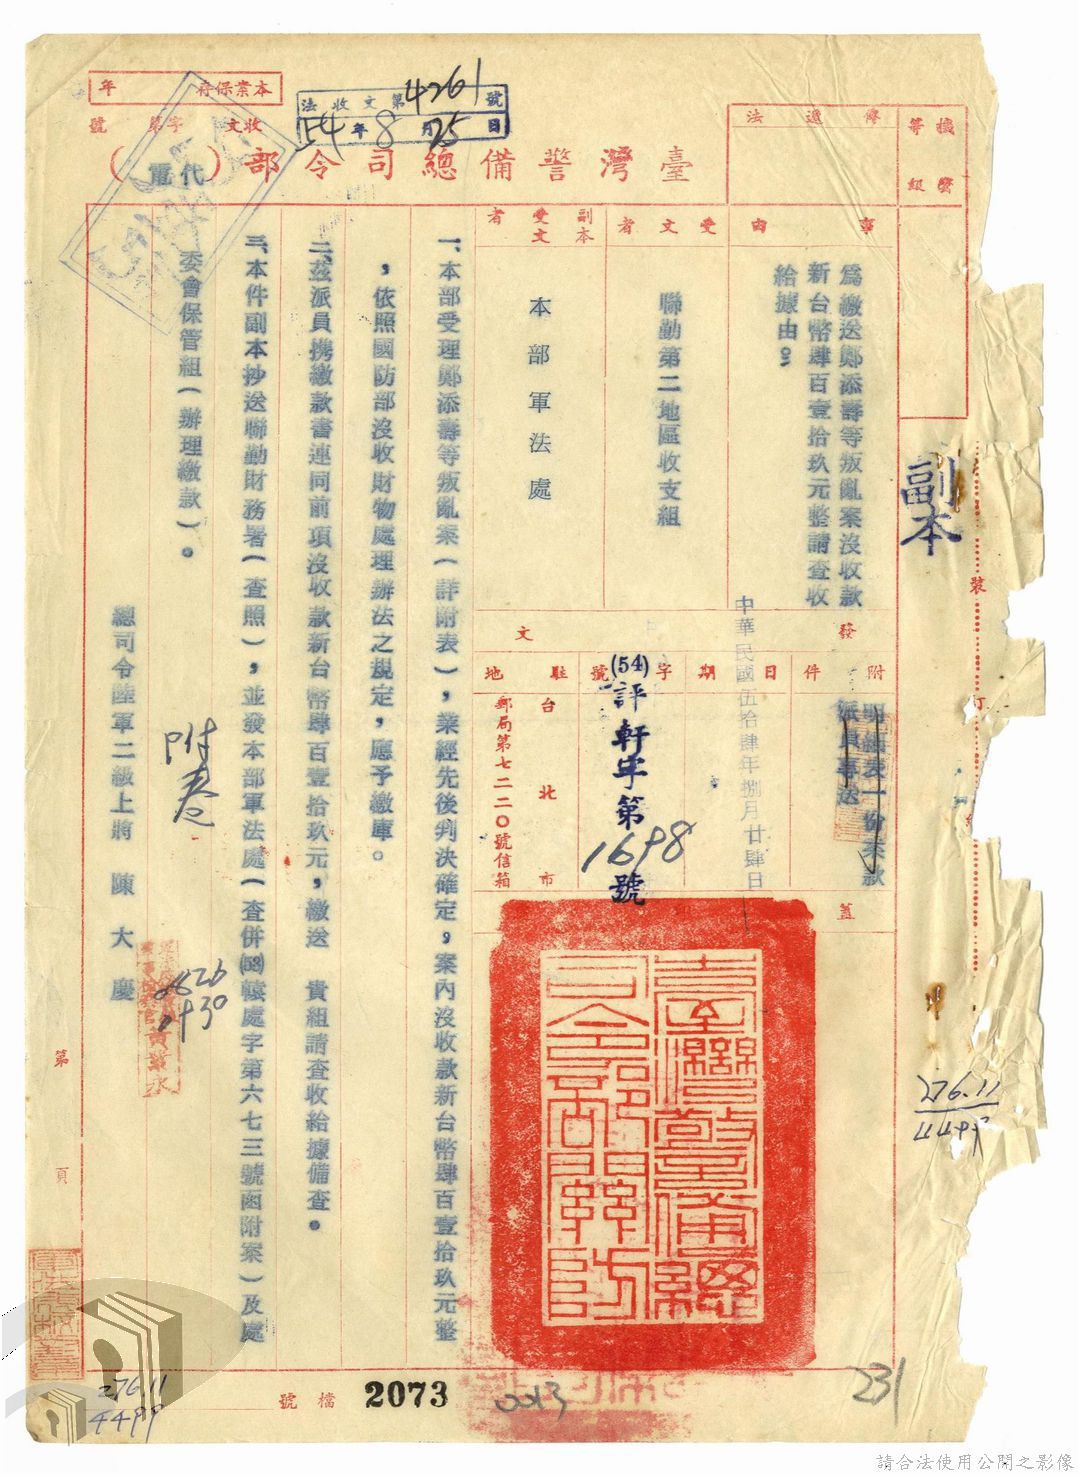 副本
機密等級
傳遞法
本案保存 年
收文 字第 號
法收文第4261號
54年8月25日
臺灣警備總司令部(代電)
事由
為繳送鄭添壽等叛亂案沒收款
新台幣肆百壹拾玖元整請查收
給據由。
受文者
聯勤第二地區收支組
副本受文者
本部軍法處
發文
附件
派員專送
日期
中華民國伍拾肆年捌月廿肆日
字號
(54)評軒字第1698號
駐地
台北市
郵局第七二二〇號信箱
蓋
臺灣警備總司令部關防
一、本部受理鄭添壽等叛亂案(詳附表),業經先後判決確定,案內沒收款新台幣肆百壹拾玖元整
,依照國防部沒收財物處理辦法之規定,應予繳庫。
二、茲派員携繳款書連同前項沒收款新台幣肆百壹拾玖元,繳送 貴組請查收給據備查。
三、本件副本抄送聯勤財務署(查照),並發本部軍法處(查併(53)轅處字第六七三號函附案)及處
委會保管組(辦理繳款)。
總司令陸軍二級上將 陳大慶
附卷
0826
1130
第 頁
裝
訂
276.11
276.11
4499
檔號
2073
0013
231
請合法使用公開之影像